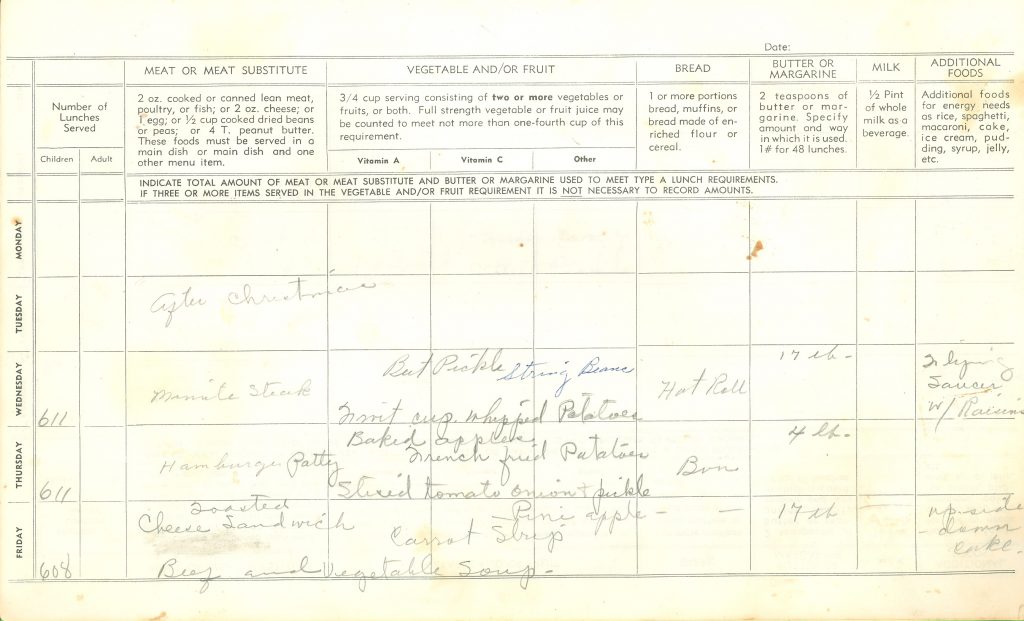 Date:
MEAT OR MEAT SUBSTITUTE
VEGETABLE AND/OR FRUIT
BREAD
BUTTER OR
MARGARINE
MILK
ADDITIONAL
FOODS
Number of
Lunches
Served
2 oz. cooked or canned lean meat,
poultry, or fish; or 2 oz. cheese; or
1 egg; or ½ cup cooked dried beans
or peas; or 4 T. peanut butter.
These foods must be served in a
main dish or main dish and one
other menu item.
3/4 cup serving consisting of two or more vegetables or
fruits, or both. Full strength vegetable or fruit juice may
be counted to meet not more than one-fourth cup of this
requirement.
1 or more portions
bread, muffins, or
bread made of en-
riched flour or
cereal.
2 teaspoons of
butter or mar-
garine. Specify
amount and way
in which it is used.
1# for 48 lunches.
½ Pint
of whole
milk as a
beverage.
Additional foods
for energy needs
as rice, spaghetti,
macaroni, cake,
ice cream, pud-
ding, syrup, jelly,
etc.
Children
Adult
Vitamin A
Vitamin C
Other
INDICATE TOTAL AMOUNT OF MEAT OR MEAT SUBSTITUTE AND BUTTER OR MARGARINE USED TO MEET TYPE A LUNCH REQUIREMENTS.
IF THREE OR MORE ITEMS SERVED IN THE VEGETABLE AND/OR FRUIT REQUIREMENT IT IS NOT NECESSARY TO RECORD AMOUNTS.
MONDAY
TUESDAY
After Christmas
WEDNESDAY
611
Minute Steak
Beet Pickle String Beans
Fruit cup Whipped Potatoes
Hot Roll
17 lb-
Flying
Saucer
W/ Raisins
THURSDAY
611
Hamburger Patty
Baked apples
French fried Potatoes
Sliced tomato onion + pickle
Bun
4 lb-
FRIDAY
608
Toasted
Cheese Sandwich
Beef and Vegetable Soup-
-Pine apple-
Carrot Strip
-
17 lb
-
up-side
-down
cake-